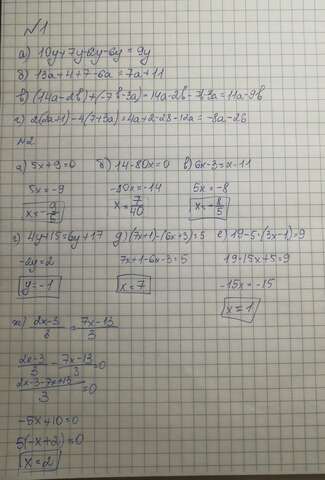 №1
а) 10y+7y-2y-6y=9y
б) 13a+4+7-6a=7a+11
в) (14a-2b)+(-7b-3a)=14a-2b-7b-3a=11a-9b
г) 2(2a+1)-4(7+3a)=4a+2-28-12a=-8a-26
№2
а) 5x+9=0 б) 14-80x=0 в) 6x-3=x-11
5x=-9 -80x=-14 5x=-8
x=-9/5 x=7/40 x=-8/5
г) 4y+15=6y+17 д) (7x+1)-(6x+3)=5 е) 19-5(3x-1)=9
-2y=2 7x+1-6x-3=5 19-15x+5=9
y=-1 x=7 -15x=-15
x=1
ж) (2x-3)/3=(7x-13)/3
(2x-3)/3-(7x-13)/3=0
(2x-3-7x+13)/3=0
-5x+10=0
5(-x+2)=0
x=2